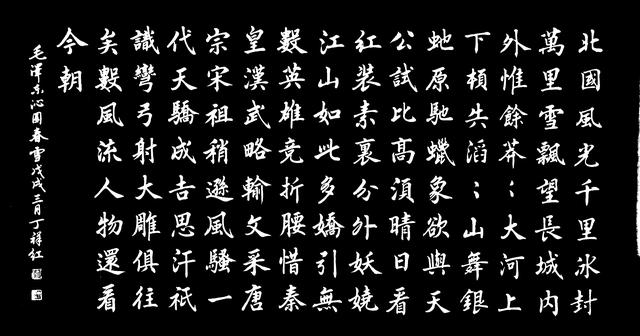 北國風光千里冰封
萬里雪飄望長城內
外惟餘莽〻大河上
下頓失滔〻山舞銀
虵原馳蠟象欲與天
公試比高須晴日看
紅裝素裹分外妖嬈
江山如此多嬌引無
數英雄竞折腰惜秦
皇漢武略輸文采唐
宗宋祖稍遜風騷一
代天驕成吉思汗祇
識彎弓射大雕俱往
矣數風流人物還看
今朝
毛澤东沁园春雪戊戌三月丁祥紅